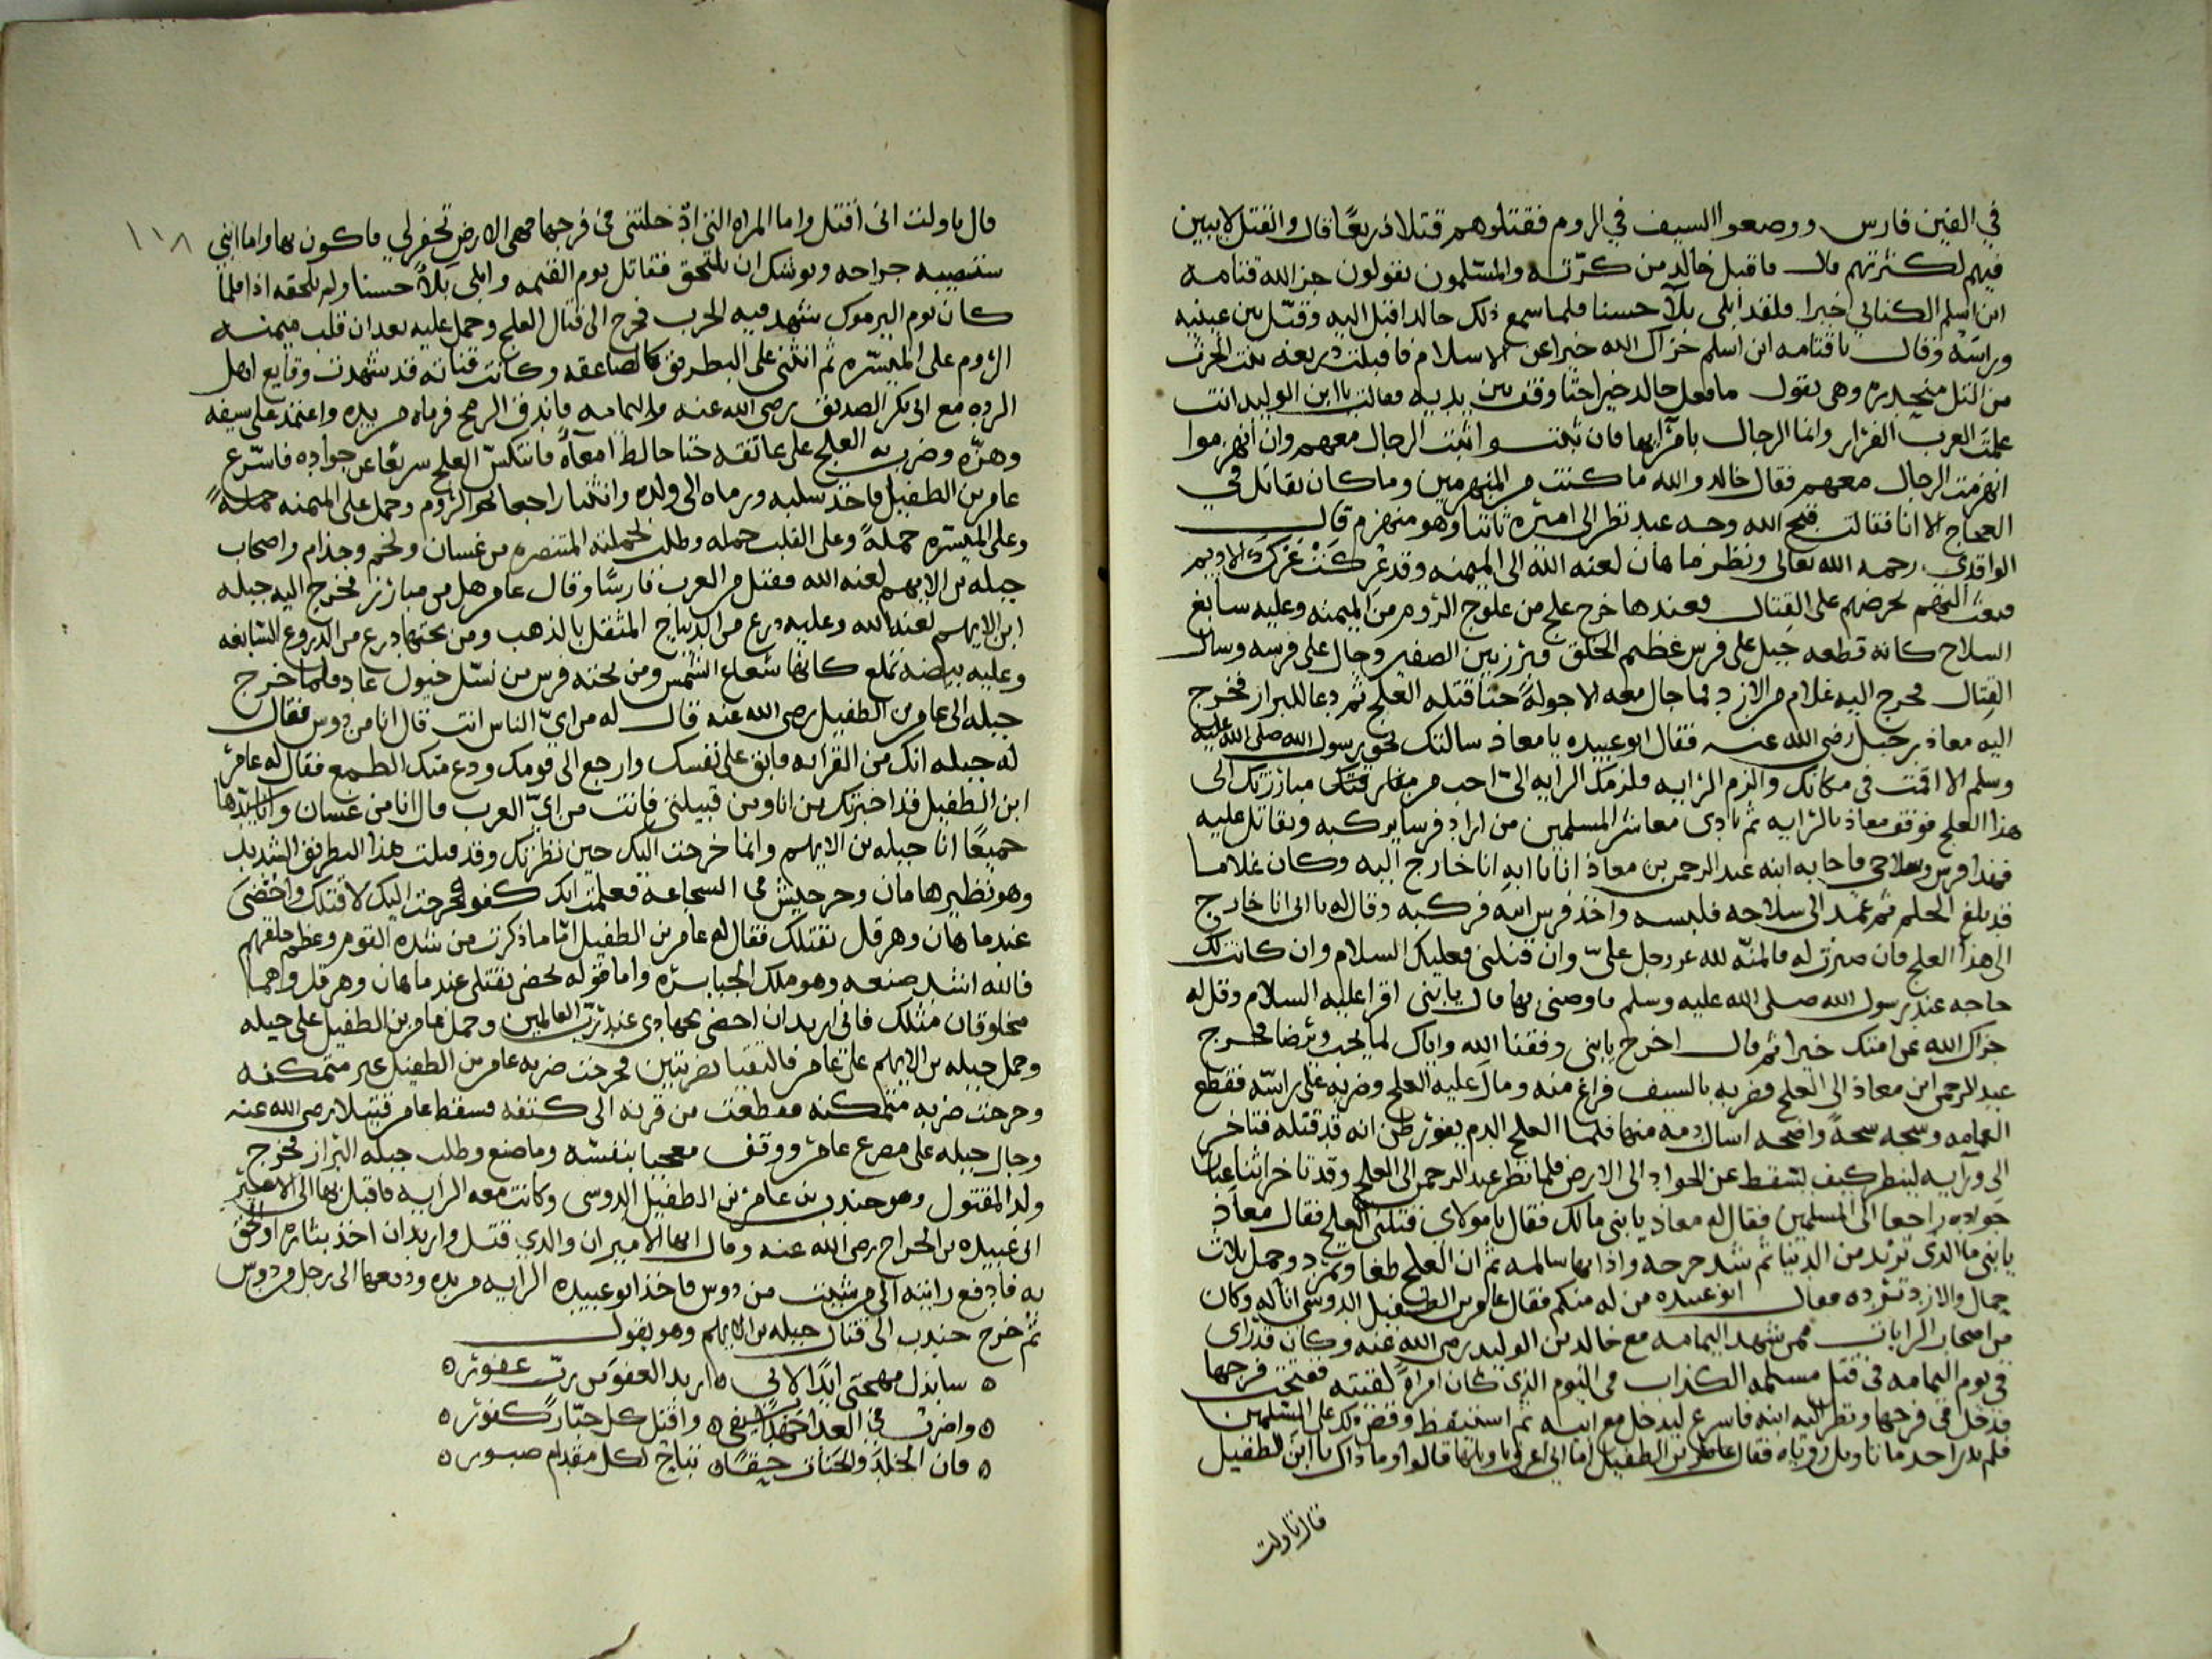 في الفين فارس ووصعوا السيف في الروم فقتلوهم قتلا ذريعًا قال والقتل لايبين
فيهم لكثرتهم قال فاقبل خالد من كرّته والمسلمون يقولون جزا الله قثامه
ابن اسلم الكناني خيرا فلقد ابلى بلآ حسنا فلما سمع ذلك خالد اقبل اليه وقبّل بين عينيه
وراسه وقال يا قثامه ابن اسلم جزاك الله خيرا عن الاسلام فاقبلت بنت الحرث
من التل منحدره وهي تقول ما فعل خالد خيرا حتا وقفت بين يديه فقالت يا ابن الوليد انت
علمت العرب الفرار وانما الرجال بامرآيها فان ثبتوا اثبت الرجال معهم وان انهزموا
انهزمت الرجال معهم فقال خالد والله ما كنت من المنهزمين وما كان يقاتل في
العجاج الا انا فقالت قبح الله وجه عبد نظر الى اميره ثابتا وهو منهزم قال
الواقدي رحمه الله تعالى ونظر ماهان لعنه الله الى الميمنه وقد عركت عرك الاديم
فبعث اليهم يحرضهم على القتال فعندها خرج علج من علوج الروم من الميمنه وعليه سابغ
السلاح كانه قطعه جبل على فرس عظيم الخلق فبرز بين الصفين وجال على فرسه وسال
القتال فخرج اليه غلام من الازد فما جال معه الا جولةً حتا قتله العلج ثم دعا للبراز فخرج
اليه معاذ بن جبل رضي الله عنه فقال ابو عبيده يا معاذ سالتك بحق رسول الله صلى الله عليه
وسلم الا اقمت في مكانك والزم الرايه فلزمك الرايه اليّ احب من مبارزتك الى
هذا العلج فوقف معاذ بالرايه ثم نادى معاشر المسلمين من اراد فرسا يركبه ويقاتل عليه
فهذا فرسي وسلاحي فاجابه ابنه عبد الرحمن بن معاذ انا يا ابه انا خارج اليه وكان غلاما
قد بلغ الحلم ثم عمد الى سلاحه فلبسه واخذ فرس ابيه فركبه وقال له يا ابي انا خارج
الى هذا العلج فان صبرت له فالمنّه لله عز وجل عليّ وان قتلني فعليك السلام وان كانت لك
حاجه عند رسول الله صلى الله عليه وسلم فاوصني بها قال يا بني اقرا عليه السلام وقل له
جزاك الله عن امتك خيرا ثم قال اخرج يا بني وفقنا الله واياك لما يحب ويرضا فخرج
عبد الرحمن ابن معاذ الى العلج وضربه بالسيف فراغ منه ومال عليه العلج وضربه على راسه فقطع
العمامه وشجه شجةً واضحه اسال دمه منها فلما العلج الدم يفور ظن انه قد قتله فتاخر
الى ورآيه لينظر كيف يسقط عن الجواد الى الارض فلما نظر عبد الرحمن الى العلج وقد تاخر اثنا عنان
جواده راجعا الى المسلمين فقال له معاذ يا بني مالك فقال يا مولاي قتلني العلج فقال معاذ
يا بني ما الذي تريد من الدنيا ثم شد جرحه واذا بها سالمه ثم ان العلج طغا وتمرد وحمل ثلاث
حمال والازد ترده فقال ابو عبيده من له منكم فقال عامر بن الطفيل الدوسي انا له وكان
من اصحاب الرايات ممن شهد اليمامه مع خالد بن الوليد رضي الله عنه وكان قد راى
في يوم اليمامه في قتل مسيلمه الكذاب في النوم الذي كان امراةً لقيته ففتحت فرجها
فدخل في فرجها ونظر اليه ابنه فاسرع ليدخل مع ابيه ثم استيقظ وقص ذلك على المسلمين
فلم يدر احد ما تاويل روياه فقال عامر بن الطفيل اما اني اعرف تاويلها قالوا وما ذاك يا ابن الطفيل
قال تاولت
١١٨
قال تاولت اني اقتل واما المراه التي ادخلتني في فرجها فهي الارض تحفر لي فاكون بها واما ابني
ستصيبه جراحه ويوشك ان يلتحق فقاتل يوم اليمامه وابلى بلآءً حسنا ولم يلحقه اذا فلما
كان يوم اليرموك شهد فيه الحرب فخرج الى قتال العلج وحمل عليه بعد ان قلب ميمنه
الروم على الميسره ثم انثنى على البطريق كالصاعقه وكانت قناته قد شهدت وقايع اهل
الرده مع ابي بكر الصديق رضي الله عنه واليمامه فاندق الرمح فرماه من يده واعتمد على سيفه
وهزّه وضرب به العلج على عاتقه حتا خالط امعآه فانتكس العلج سريعًا عن جواده فاسرع
عامر بن الطفيل فاخذ سلبه ورماه الى ولده وانثنا راجعا نحو الروم وحمل على الميمنه حملةً
وعلى الميسره حملةً وعلى القلب حمله وطلب بحملته المتنصره من غسان ولخم وجذام واصحاب
جبله بن الايهم لعنه الله فقتل من العرب فارسًا وقال عامر هل من مبارز فخرج اليه جبله
ابن الايهم لعنه الله وعليه درع من الديباج المثقل بالذهب ومن تحتها درع من الدروع السابغه
وعليه بيضه تلمع كانها شعاع الشمس ومن تحته فرس من نسل خيول عاد فلما خرج
جبله الى عامر بن الطفيل رضي الله عنه قال له من ايّ الناس انت قال انا من دوس فقال
له جبله انك من القرابه فابق على نفسك وارجع الى قومك ودع عنك الطمع فقال له عامر
ابن الطفيل قد اخبرتك من انا ومن قبيلتي فانت من ايّ العرب قال انا من غسان وانا سيدها
جميعًا انا جبله بن الايهم وانما خرجت اليك حين نظرتك وقد قتلت هذا البطريق الشديد
وهو نظير ماهان وجرجيس في الشجاعه فعلمت انك كفو فخرجت اليك لاقتلك واحضى
عند ماهان وهرقل بقتلك فقال له عامر بن الطفيل امّا ما ذكرت من شده القوم وعظم خلقهم
فالله اشد صنعه وهو ملك الجبابره واما قوله تحضى بقتلي عند ماهان وهرقل واهما
مخلوقان مثلك فاني اريد ان احضى بجهادي عند رب العالمين وحمل عامر بن الطفيل على جبله
وحمل جبله بن الايهم على عامر فالتقيا بضربتين فخرجت ضربه عامر بن الطفيل غير متمكنه
وخرجت ضربه متمكنه فقطعت من قرنه الى كتفه فسقط عامر قتيلا رضي الله عنه
وجال جبله على مصرع عامر ووقف معجبا بنفسه وما صنع وطلب جبله البراز فخرج
ولد المقتول وهو جندب بن عامر بن الطفيل الدوسي وكانت معه الرايه فاقبل بها الى الامير
ابي عبيده بن الجراح رضي الله عنه وقال ايها الامير ان والدي قتل واريد ان اخذ بثاره او الحق
به فادفع رايته الى من شيت من دوس فاخذ ابو عبيده الرايه من يده ودفعها الى رجل من دوس
ثم خرج جندب الى قتال جبله بن الايهم وهو يقول
ه سابذل مهجتي ابدًا لاني ه اريد العفو من ربّ غفور ه
ه واضرب في العدا جهدًا بسيفي ه واقتل كل جبّار كفور ه
ه فان الخلد والجنات حقًا ه تباح لكل مقدام صبور ه